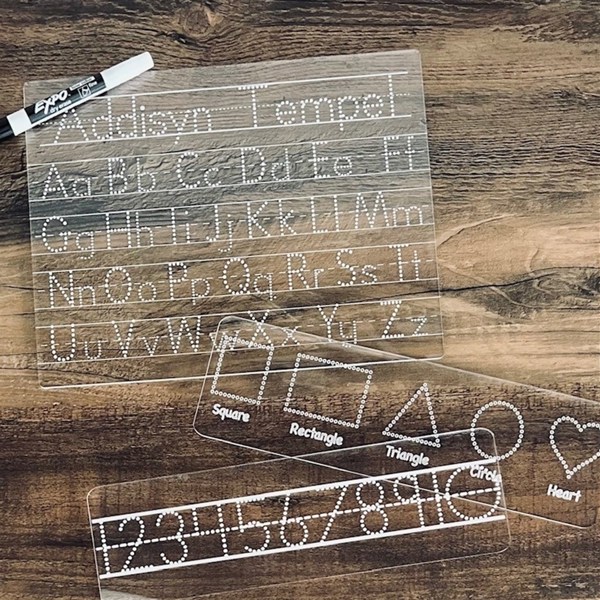 EXPO
Addisyn Tempel
Aa Bb Cc Dd Ee Ff
Gg Hh Ii Jj Kk Ll Mm
Nn Oo Pp Qq Rr Ss Tt
Uu Vv Ww Xx Yy Zz
Square
Rectangle
Triangle
Circle
Heart
12345678910